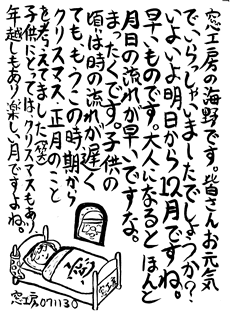 窓工房の海野です。皆さんお元気
でいらっしゃいましたでしょうか?
いよいよ明日から12月ですね。
早いものです。大人になるとほんと
月日の流れが早いですな。
まったくです。子供の
頃は時の流れが遅く
てもうこの時期から
クリスマス・正月のこと
を考えてました(笑)
子供にとってはクリスマスもあり
年越しもあり楽しい月ですよね。
窓工房
窓工房 071130